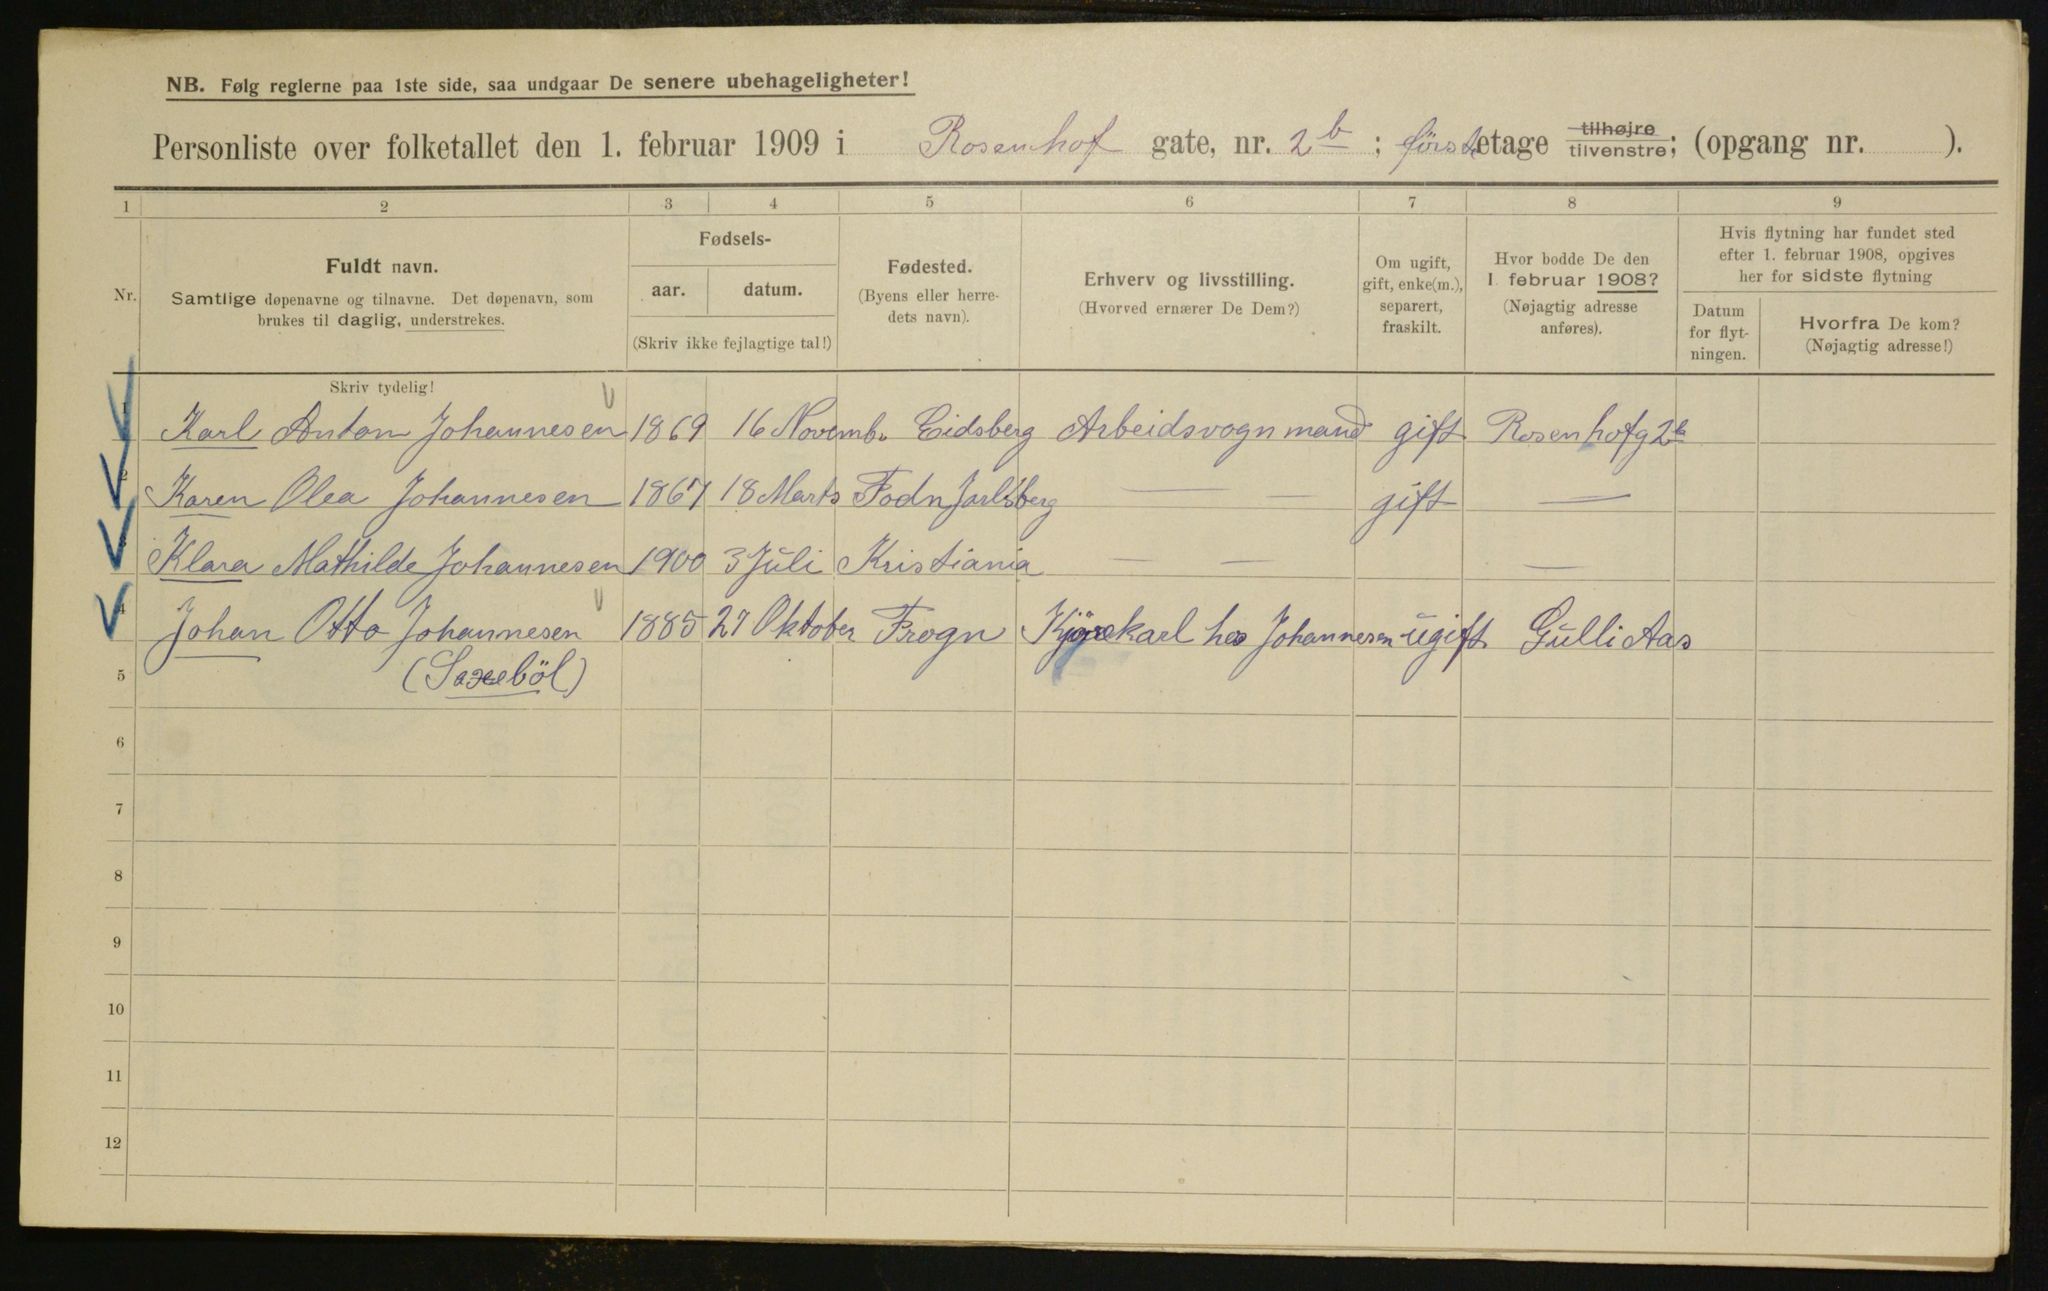 NB. Følg reglerne paa 1ste side, saa undgaar De senere ubehageligheter!
Personliste over folketallet den 1. februar 1909 i Rosenhof gate, nr. 2 b ; först etage tilhøjre tilvenstre; (opgang nr. ).
1 2 3 4 5 6 7 8 9
Nr.
Fuldt navn.
Samtlige døpenavne og tilnavne. Det døpenavn, som
brukes til daglig, understrekes.
Skriv tydelig!
Fødsels-
aar. datum.
(Skriv ikke fejlagtige tal!)
Fødested.
(Byens eller herre-
dets navn).
Erhverv og livsstilling.
(Hvorved ernærer De Dem?)
Om ugift,
gift, enke(m.),
separert,
fraskilt.
Hvor bodde De den
1 februar 1908?
(Nøjagtig adresse
anføres).
Hvis flytning har fundet sted
efter 1. februar 1908, opgives
her for sidste flytning
Datum
for flyt-
ningen.
Hvorfra De kom?
(Nøjagtig adresse!)
1 Karl Anton Johannesen 1869 16 Novemb. Eidsberg Arbeidsvognmand gift Rosenhofg 2b
2 Karen Olea Johannesen 1867 18 Marts Fodn Jarlsberg — — gift —
3 Klara Mathilde Johannesen 1900 3 Juli Kristiania — — —
4 Johan Otto Johannesen 1885 27 Oktober Frogn Kjörekarl hos Johannesen ugift Gulli Aas
5 (Saxeböl)
6
7
8
9
10
11
12